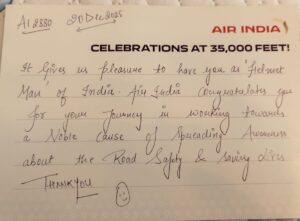 AI 2880 20 Dec 2025
AIR INDIA
CELEBRATIONS AT 35,000 FEET!
It Gives us pleasure to have you as 'Helmet
Man' of India. Air India Congratulates you
for your journey in working towards
a Noble Cause of Spreading Awareness
about the Road Safety & saving lives
THANK YOU